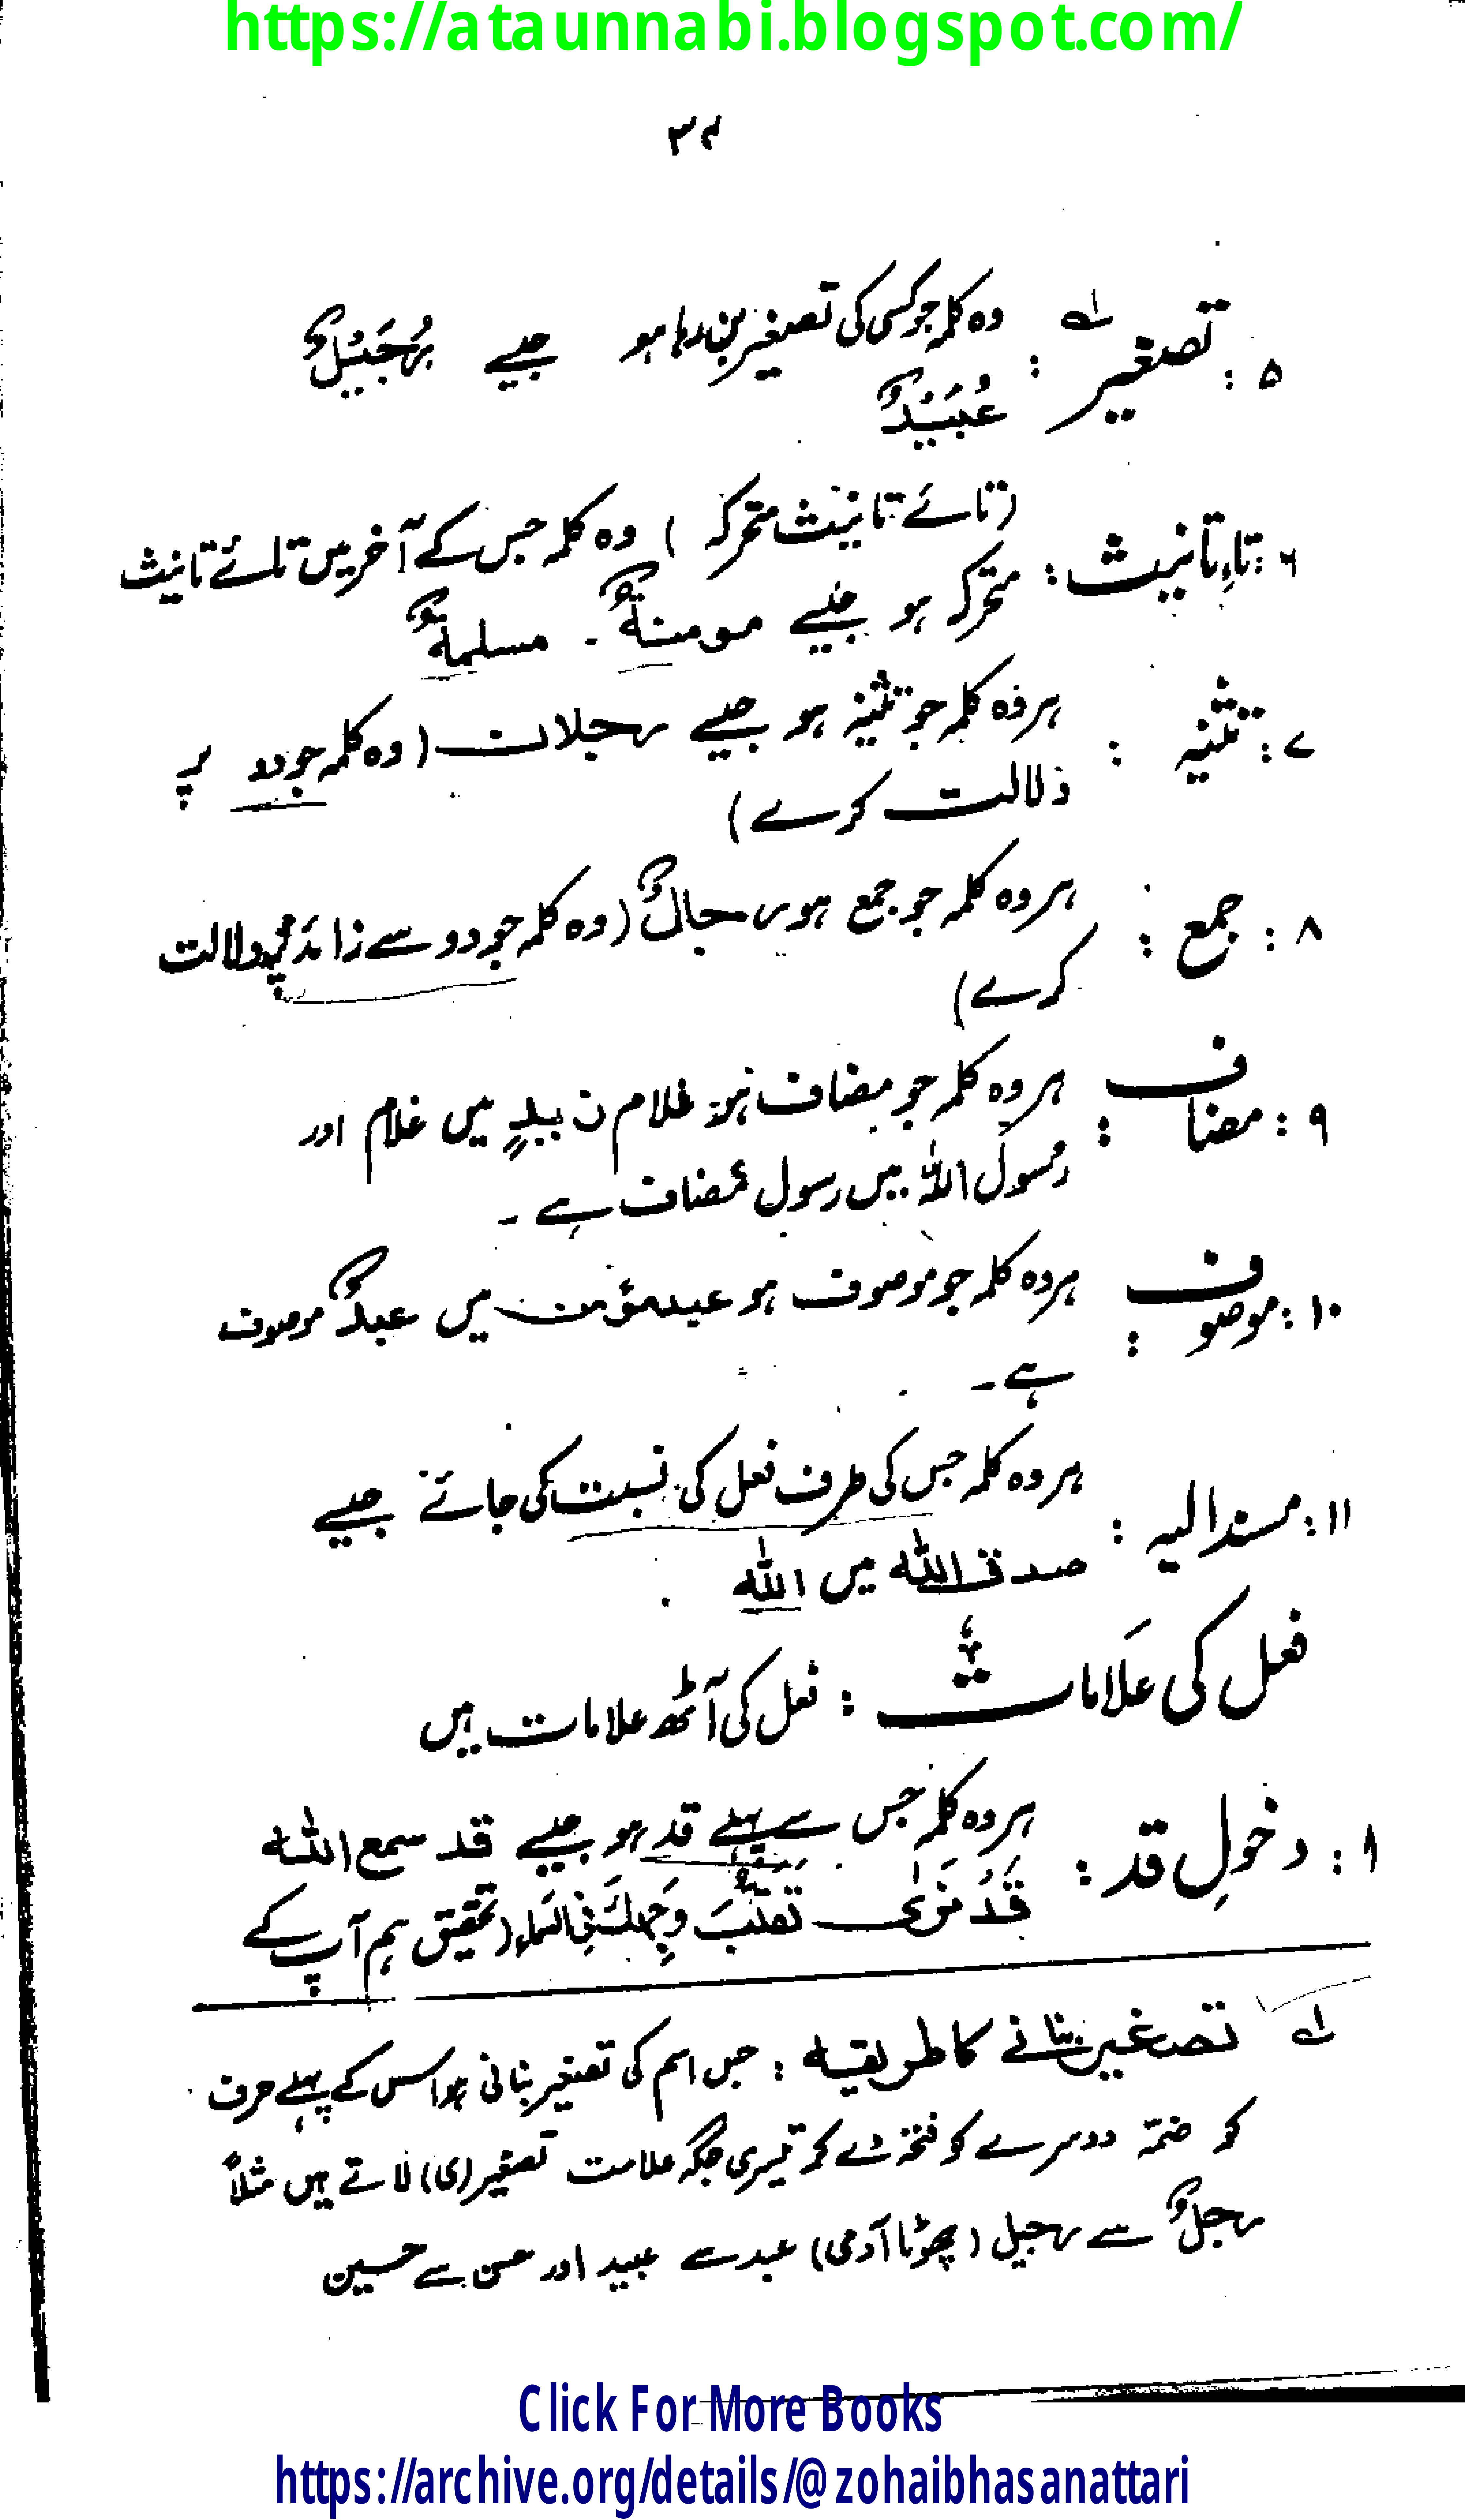 https://ataunnabi.blogspot.com/
۵ : تصغیر ؂۱ : وہ کلمہ جو کسی کی تصغیر بن رہا ہو جیسے رُجَیْلٌ
عُبَیْدٌ
۶ : تاءِ تانیث : (تائے تانیث متحرکہ) وہ کلمہ جس کے آخر میں تائے تانیث
متحرکہ ہو جیسے مومنةٌ ۔ مسلمةٌ
۷ : تثنیہ : ہر وہ کلمہ جو تثنیہ ہو جیسے رجلان (وہ کلمہ جو دو پر
دلالت کرے)
۸ : جمع : ہر وہ کلمہ جو جمع ہو رجالٌ (وہ کلمہ جو دو سے زائد پر دلالت
کرے)
۹ : مضاف : ہر وہ کلمہ جو مضاف ہو غلام زیدٍ میں غلام اور
رسول اللہ میں رسول مضاف ہے ۔
۱۰ : موصوف : ہر وہ کلمہ جو موصوف ہو عبد مؤمن میں عبدٌ موصوف
ہے ۔
۱۱ : مسند الیہ : ہر وہ کلمہ جس کی طرف فعل کی نسبت کی جائے جیسے
صدق اللہ میں اللہ
فعل کی علامات : فعل کی آٹھ علامات ہیں
۱ : دخولِ قد : ہر وہ کلمہ جس سے پہلے قد ہو جیسے قد سمع اللہ
قَدْ نَرٰی تَقَلُّبَ وَجْهِكَ فِی السَّمَاءِ (تحقیق ہم آپ کے
؂۱ تصغیر بنانے کا طریقہ : جس اسم کی تصغیر بنانی ہو اس کے پہلے حرف
کو ضمّہ دوسرے کو فتحہ دے کر تیسری جگہ علامت تصغیر (ی) لاتے ہیں مثلاً
رجلٌ سے رجیل (چھوٹا آدمی) عبد سے عبید اور حسن سے حسین
Click For More Books
https://archive.org/details/@zohaibhasanattari